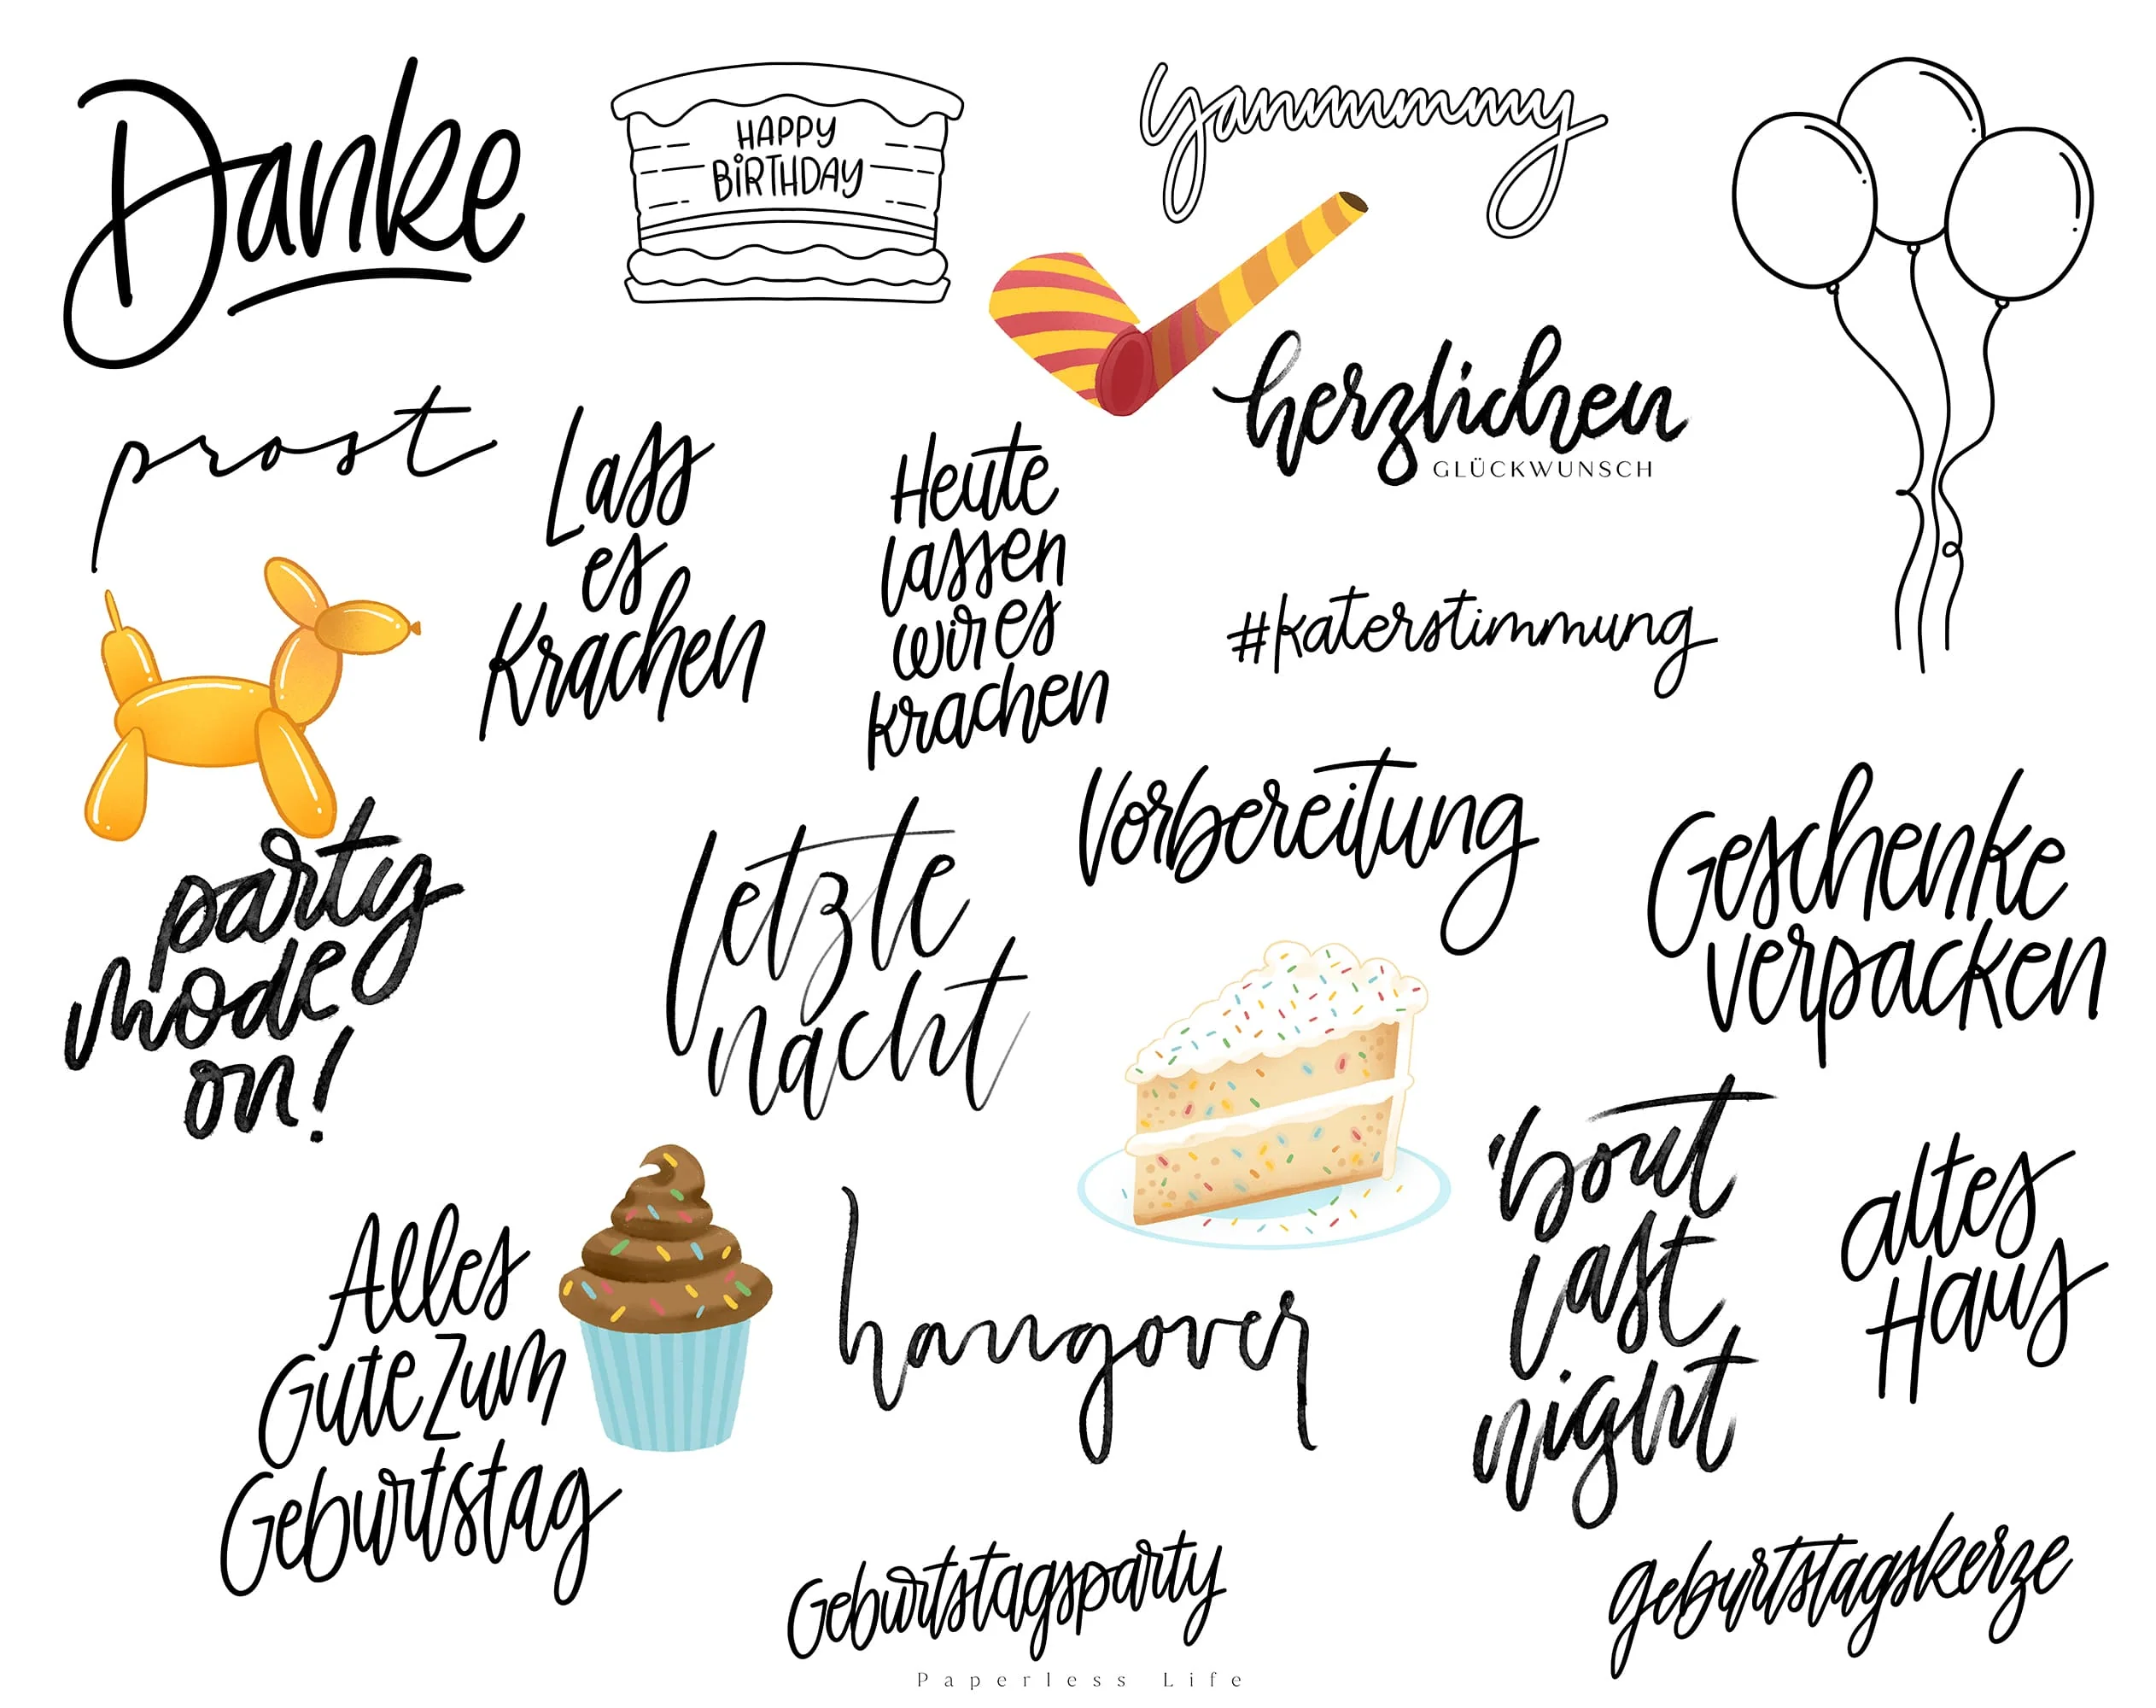 Danke
HAPPY
BiRTHDAY
yammmmy
herzlichen
GLÜCKWUNSCH
prost
Lass
es
Krachen
Heute
lassen
wir es
krachen
#katerstimmung
party
mode
on!
letzte
nacht
Vorbereitung
Geschenke
verpacken
'bout
last
night
altes
Haus
Alles
Gute zum
Geburtstag
hangover
Geburtstagsparty
geburtstagskerze
Paperless Life